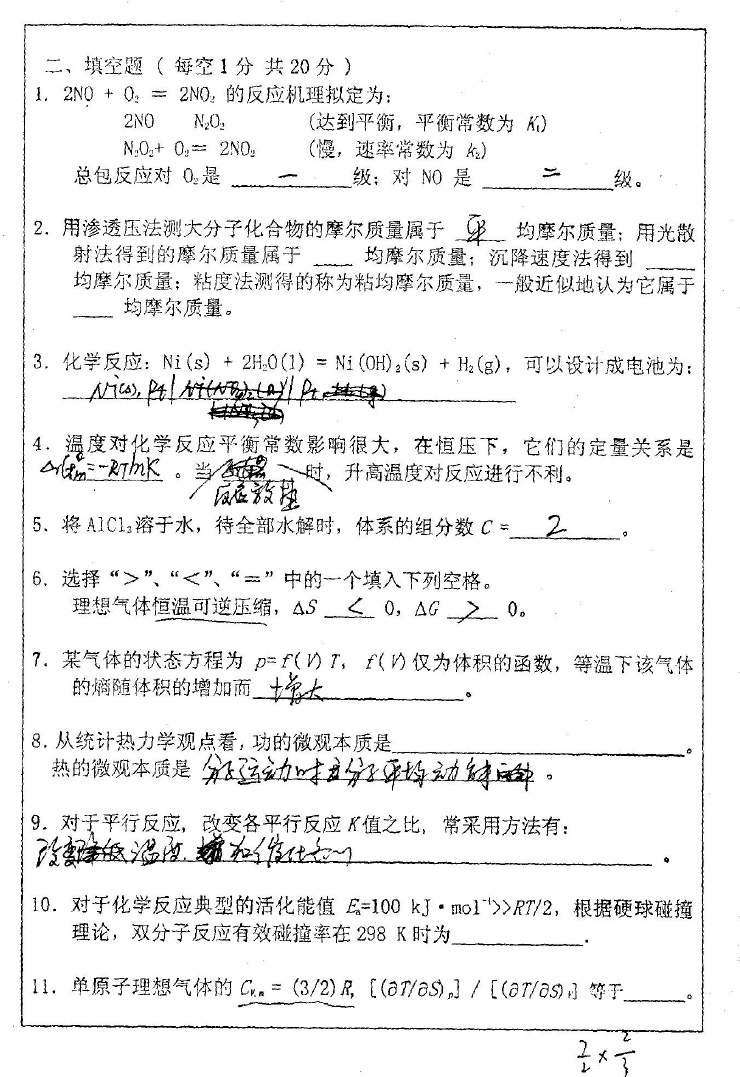 二、填空题 ( 每空1分 共20分 )
1. 2NO + O₂ = 2NO₂ 的反应机理拟定为:
2NO N₂O₂ (达到平衡, 平衡常数为 K₁)
N₂O₂+ O₂= 2NO₂ (慢, 速率常数为 k₂)
总包反应对 O₂是 一 级; 对 NO 是 二 级。
2. 用渗透压法测大分子化合物的摩尔质量属于 均摩尔质量; 用光散
射法得到的摩尔质量属于 ____ 均摩尔质量; 沉降速度法得到 ____
均摩尔质量; 粘度法测得的称为粘均摩尔质量, 一般近似地认为它属于
____ 均摩尔质量。
3. 化学反应: Ni(s) + 2H₂O(l) = Ni(OH)₂(s) + H₂(g), 可以设计成电池为:
Ni(s), Pt |
4. 温度对化学反应平衡常数影响很大, 在恒压下, 它们的定量关系是
=-RTlnK 。当 时, 升高温度对反应进行不利。
反应放热
5. 将 AlCl₃溶于水, 待全部水解时, 体系的组分数 C = 2 。
6. 选择 “>”、“<”、“=” 中的一个填入下列空格。
理想气体恒温可逆压缩, ΔS < 0, ΔG > 0。
7. 某气体的状态方程为 p=f(V)T, f(V)仅为体积的函数, 等温下该气体
的熵随体积的增加而 增大 。
8. 从统计热力学观点看, 功的微观本质是____。
热的微观本质是 分子运动时 分子平均动能 。
9. 对于平行反应, 改变各平行反应K值之比, 常采用方法有:
改变 温度. 和催化剂 。
10. 对于化学反应典型的活化能值 Eₐ=100 kJ·mol⁻¹>>RT/2, 根据硬球碰撞
理论, 双分子反应有效碰撞率在 298 K时为____.
11. 单原子理想气体的 Cᵥ,ₘ = (3/2)R, [(∂T/∂S)ₚ] / [(∂T/∂S)ᵥ] 等于____。